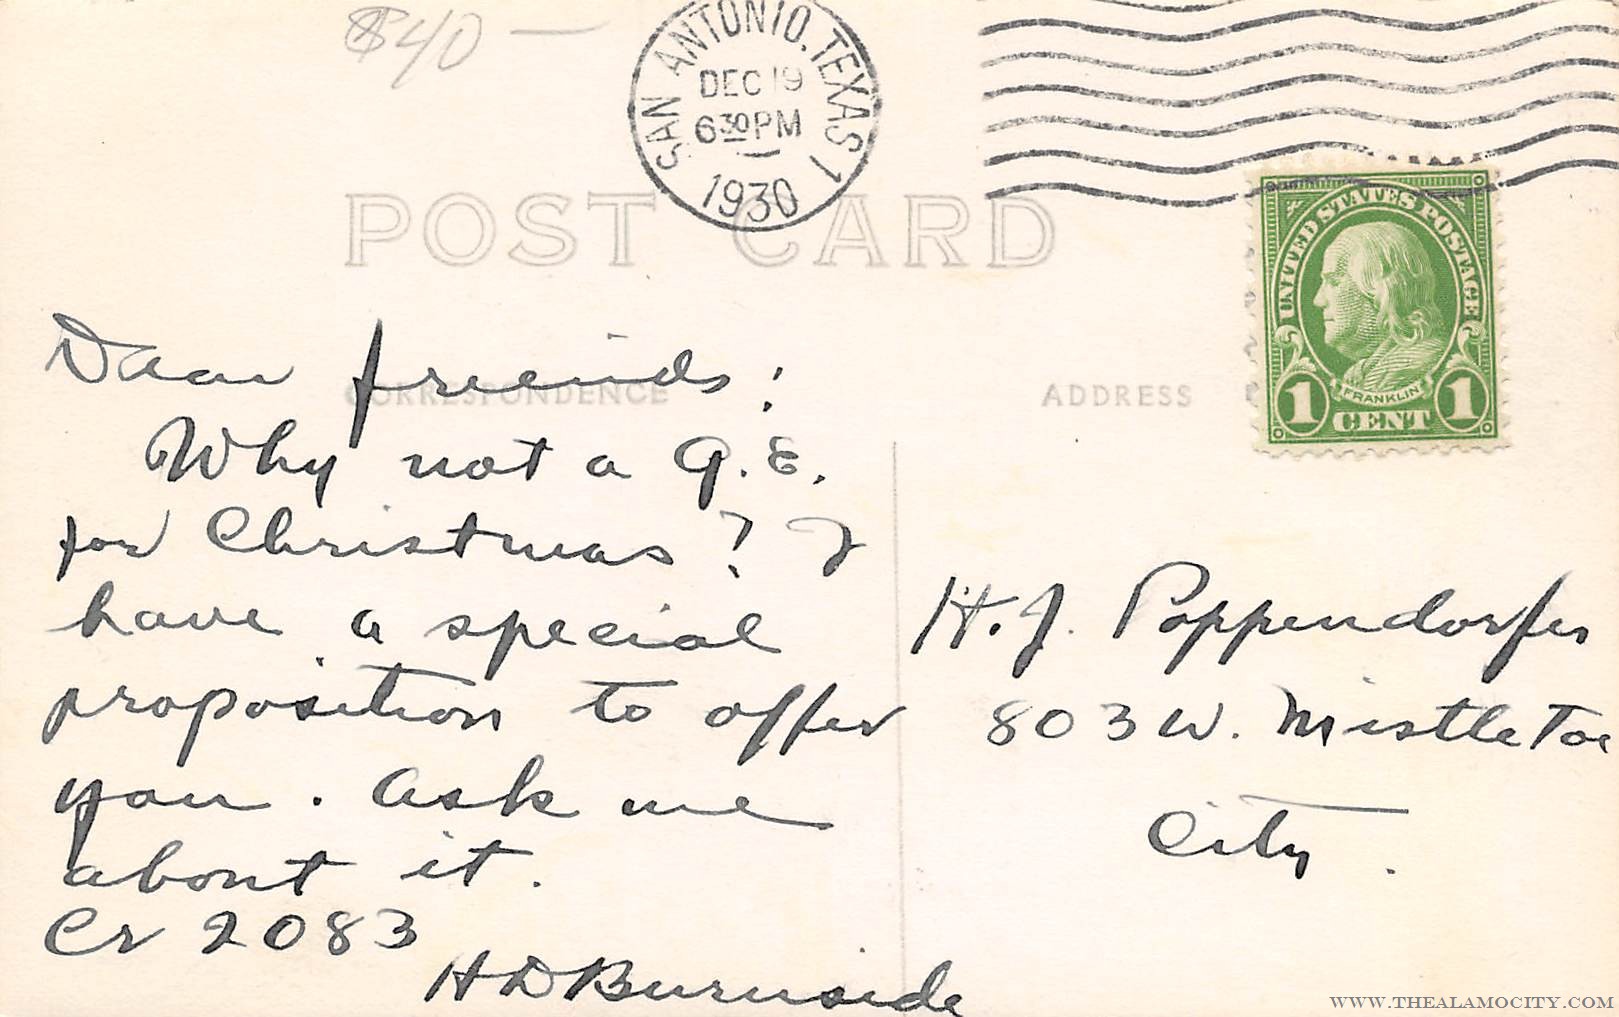 $40 —
SAN ANTONIO, TEXAS 1
DEC 19
6 30 PM
1930
POST CARD
UNITED STATES POSTAGE
FRANKLIN
1 CENT 1
CORRESPONDENCE
ADDRESS
Dear friends:
Why not a G.E.
for Christmas? I
have a special
proposition to offer
you. Ask me
about it.
Cr 2083
H D Burnside
H. J. Poppendorfer
803 W. Mistletoe
City.
WWW.THEALAMOCITY.COM